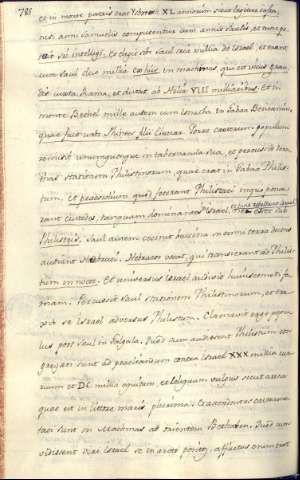 et in morte patris erat XL annorum
anni Samuelis computentur cum annis Saulis, et tunc po
intelligi. Et elegit sibi Saul tria millia de Israel, et erant
cum Saul duo millia in machmas, qui est vicus gran
dis iuxta Rama, et distat ab Helia VIII milliaribus. Et in
monte Bethel mille autem cum Ionatha in Gabaa Beniamin,
quae fuit urbs filii Porro caeterum populum
remisit unumquemque in tabernacula sua, et percussit Iona
thas stationem Philistinorum, quae erat in Gabaa Philis-
tium, et praesidium quod fecerant Philistaei
rant custodes, tanquam Israel,
Philisteis. Saul autem cecinit buccina in omni terra dicens
audiant Hebraei. Hebraeos vocat, qui transierant ad Philis
Et universus Israel audivit huiuscemodi fa
mam. Percussit Saul stationem Philistinorum, et ere
xit se Israel adversus Philistium. Clamavit ergo popu
lus post Saul in Galgala. Quod cum audissent Philistium con
gregati sunt ad praeliandum contra Israel XXX millia cur
ruum et millia equitum, et reliquum vulgus sicut arena
quae est in littore maris plurima. Et ascendentes castrame
tati sunt in Machmas ad orientem Bethaven. Quod cum
vidissent viri Israel se in arcto positos, afflictus enim erat